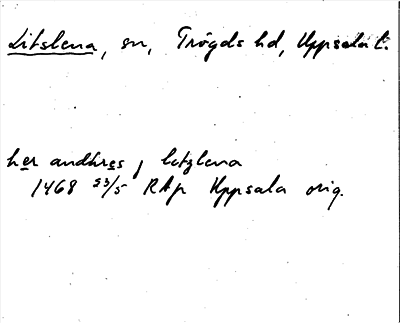 Litslena, sn, Trögds hd, Uppsala l.
her andūrs j letzlena
1468 23/5 RAp Uppsala orig.